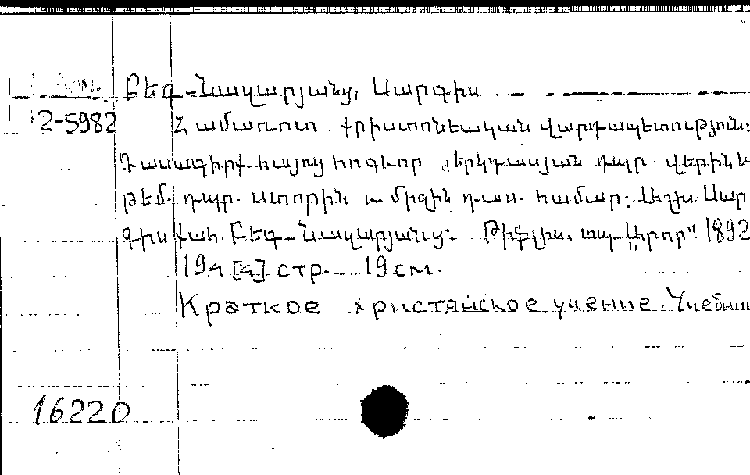 Բեգ-Նազարյանց, Սարգիս
2-5982 Համառոտ քրիստոնեական վարդապետություն:
Դասագիրք հայոց հոգևոր երկդասյան դպր. վերին և
թեմ. դպր. ստորին և միջին դաս. համար: Աշխ. Սար
գիս քահ. Բեգ-Նազարյանց. Թիֆլիս, տպ. 1892
19 стр. 19 см.
Краткое христианское учение. Учебни
16220